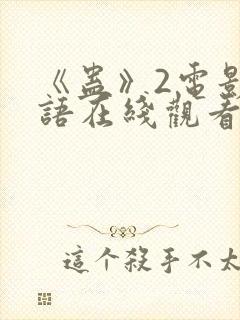 《蠱》2電影
語在綫觀看
這个殺手不太